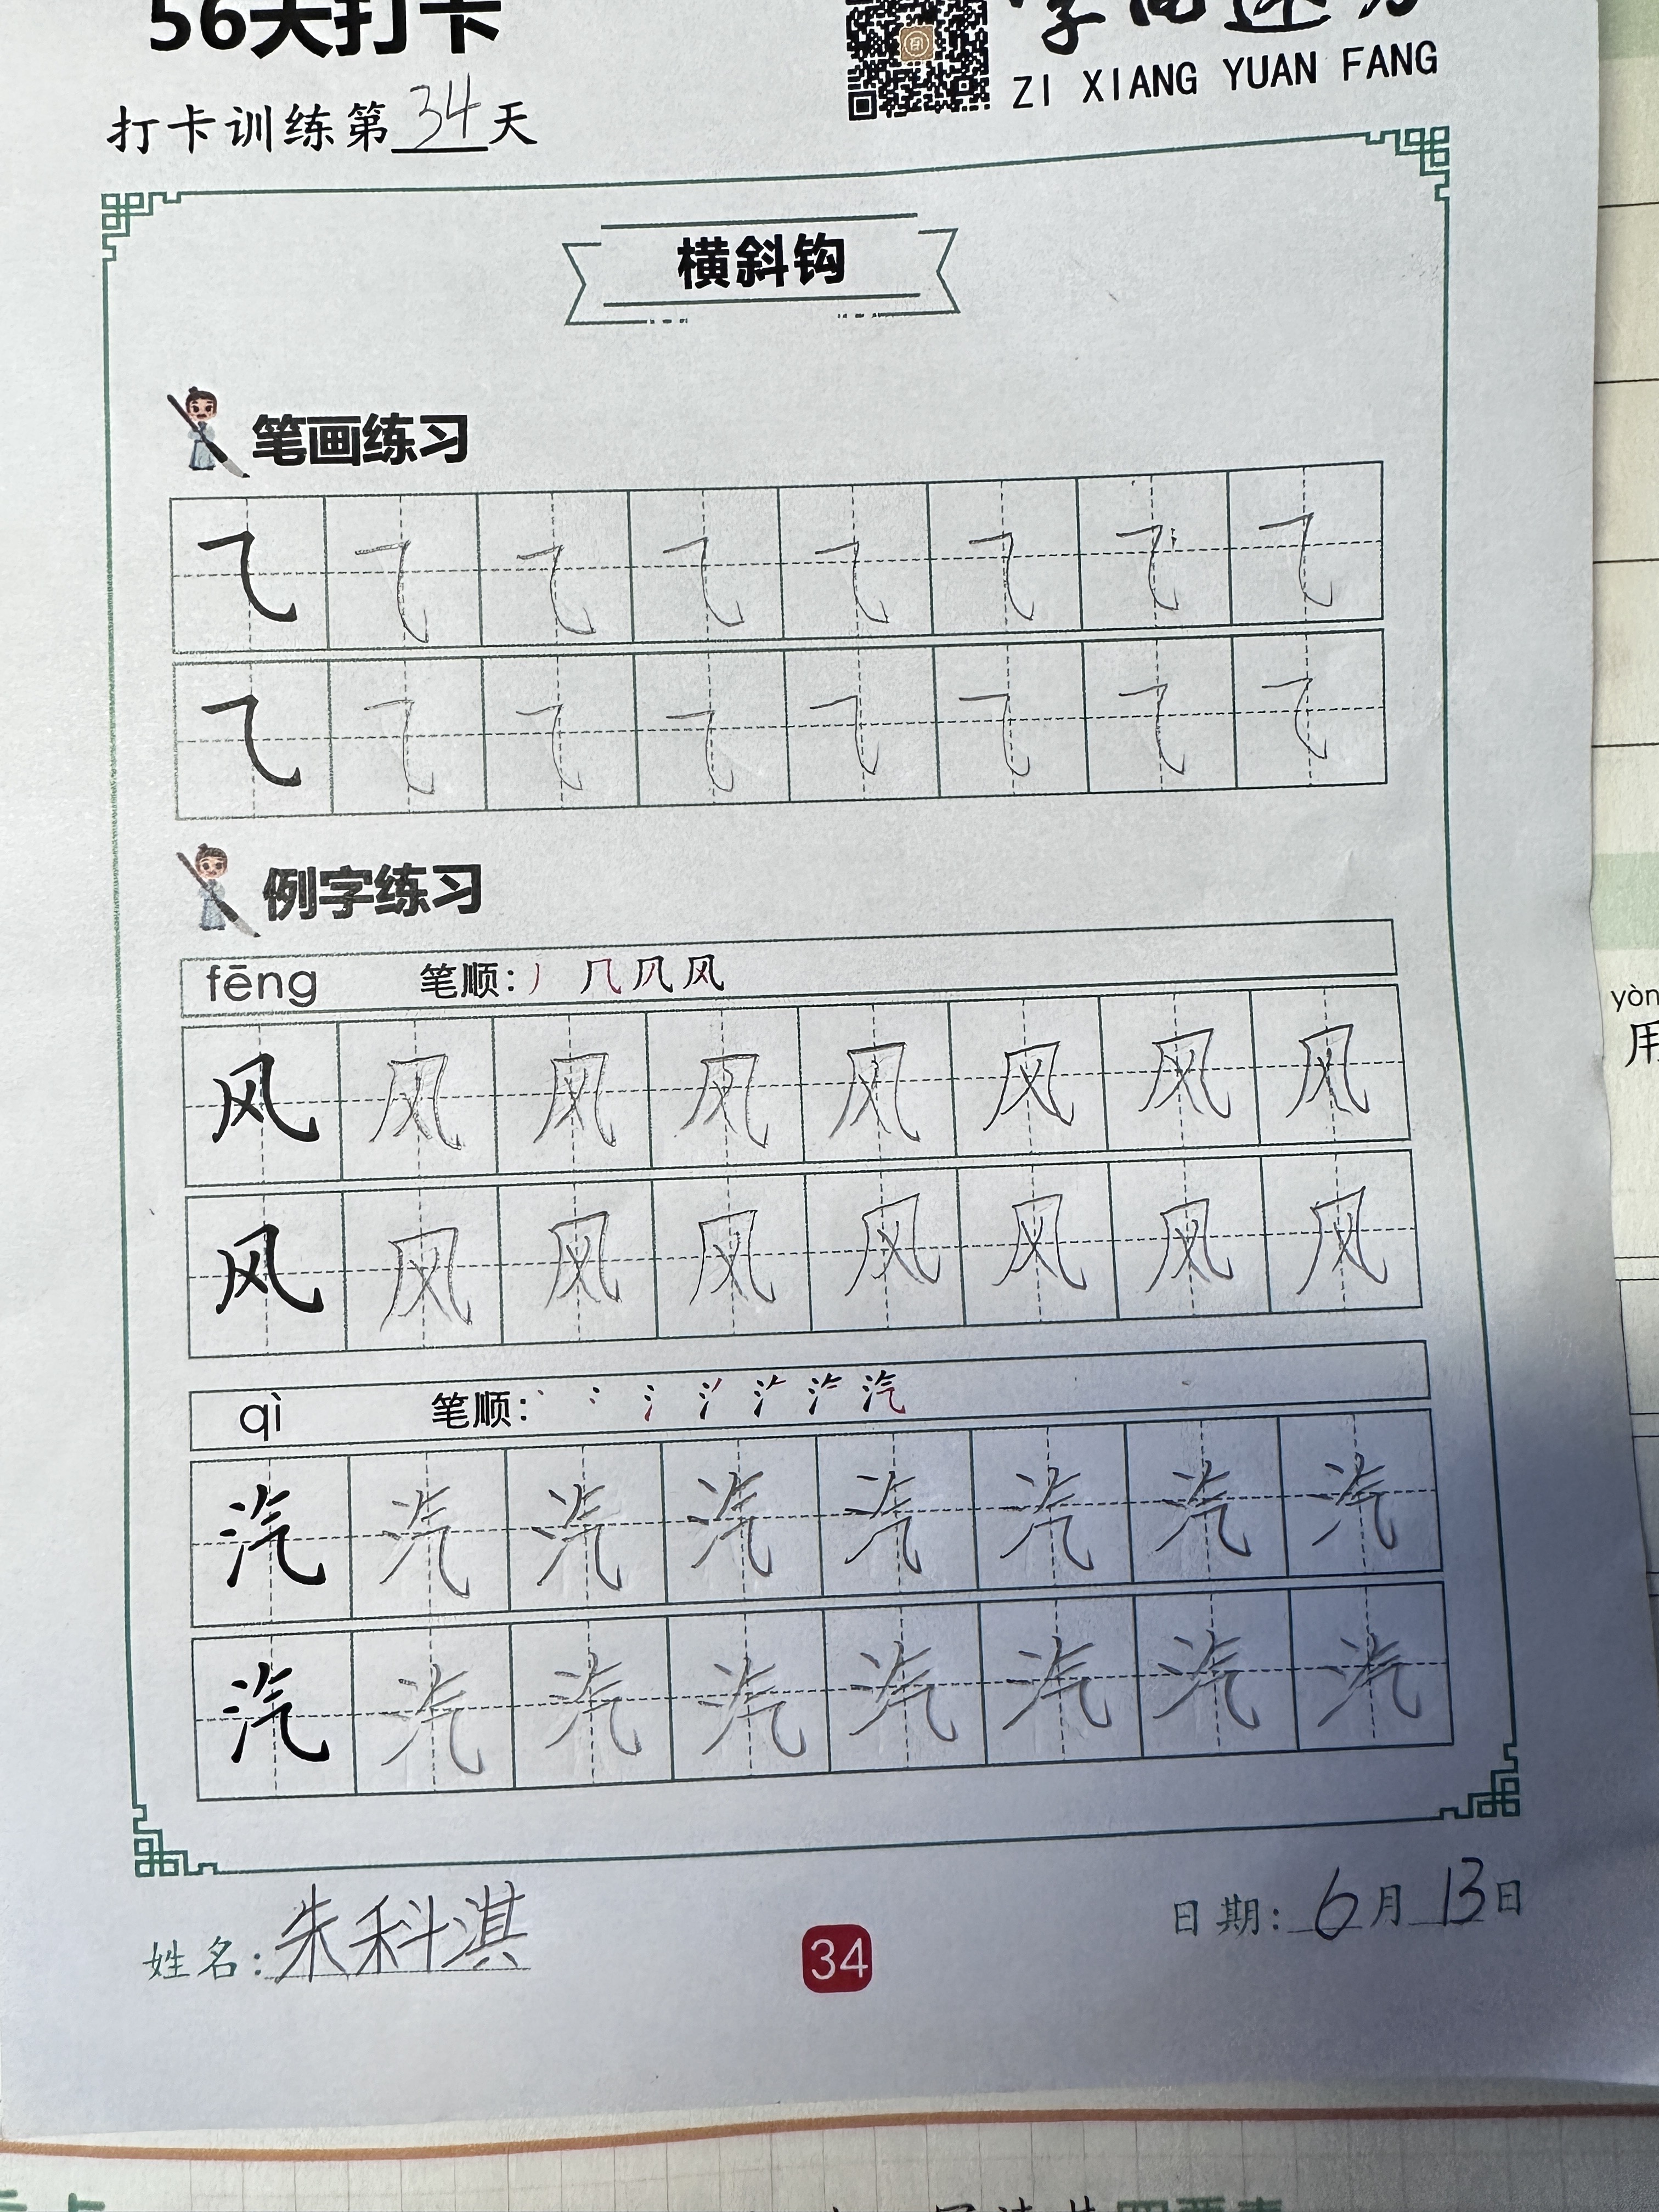 56天打卡
ZI XIANG YUAN FANG
打卡训练第34天
横斜钩
笔画练习
例字练习
fēng 笔顺: 丿 几 凤 风
风 风 风 风 风 风 风 风
风 风 风 风 风 风 风 风
qì 笔顺:
汽 汽 汽 汽 汽 汽 汽 汽
汽 汽 汽 汽 汽 汽 汽 汽
姓名:朱科淇
34
日期:6月13日
用